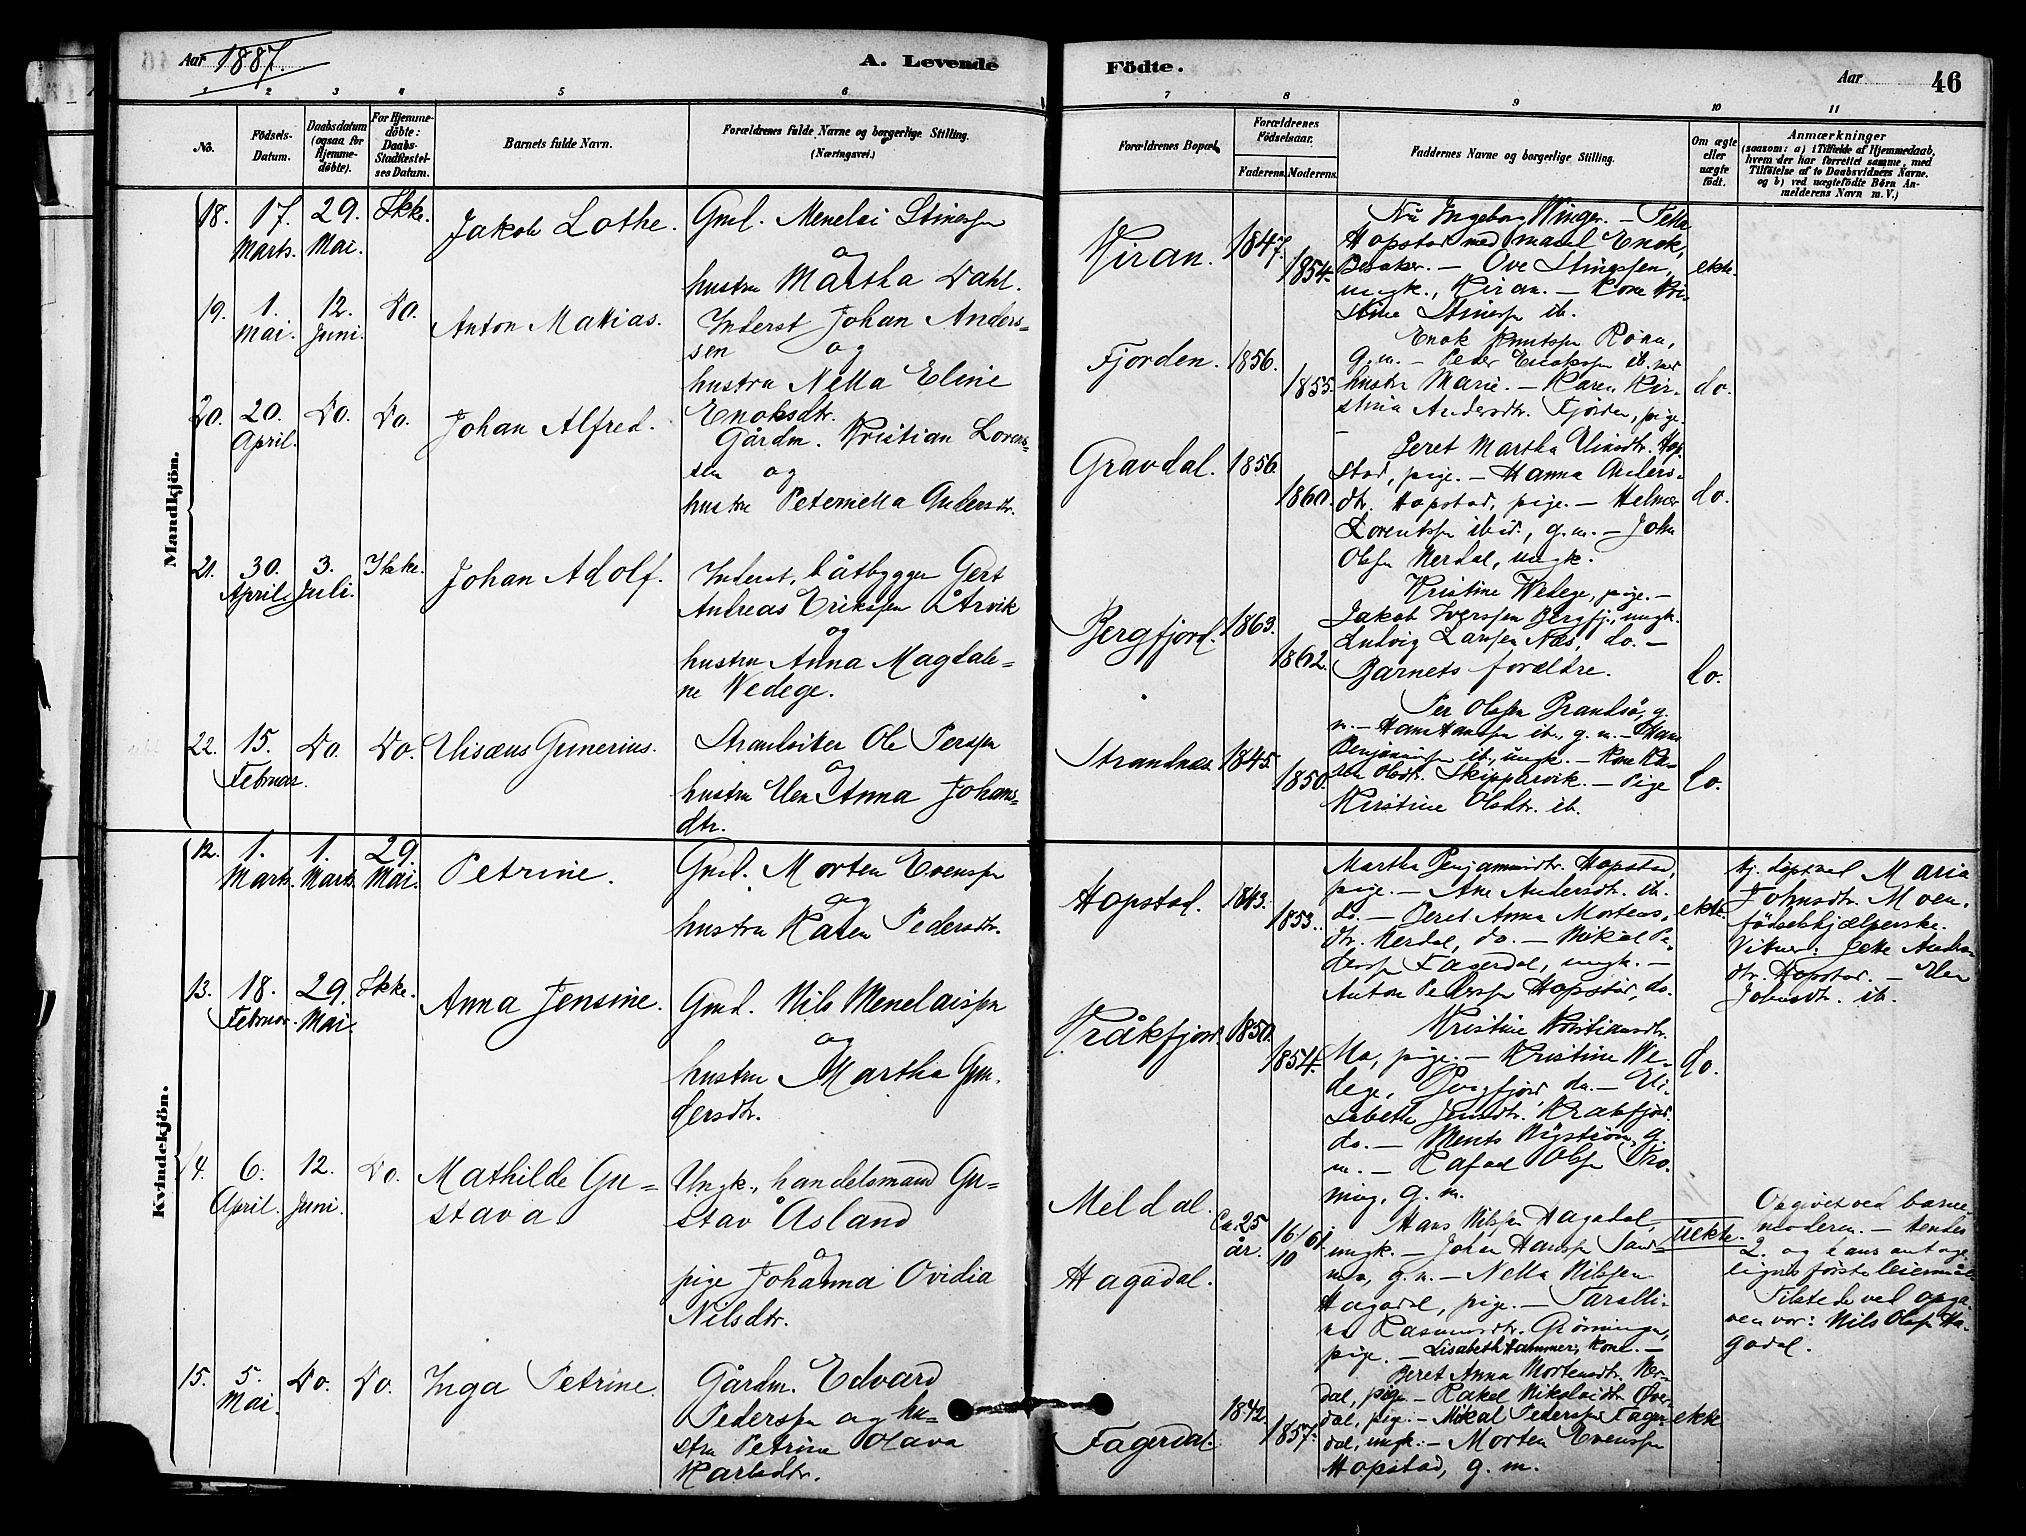 Aar 1887.
A. Levende
Födte.
Aar
46
1 2 3 4 5 6 7 8 9 10 11
No.
Födsels-
Datum.
Daabsdatum
(ogsaa for
Hjemme-
döbte).
For Hjemme-
döbte:
Daabs-
Stadfæstel-
ses Datum.
Barnets fulde Navn.
Forældrenes fulde Navne og borgerlige Stilling.
(Næringsvei.)
Forældrenes Bopæl.
Forældrenes
Födselsaar.
Faderens. Moderens.
Faddernes Navne og borgerlige Stilling.
Om ægte
eller
uægte
födt.
Anmærkninger
(saasom: a) i Tilfælde af Hjemmedaab,
hvem der har forrettet samme, med
Tilföielse af to Daabsvidners Navne.
og b) ved uægtefödte Börn An-
melderens Navn m. V.)
Mandkjön.
18. 17. Marts. 29. Mai. Ikke. Jakob Lothe.
Gmd. Menelai Stinessen
og
hustru Martha Dahl.
Kiran. 1847. 1854.
Ingeborg Winger. —
Hopstad med mand Enok,
Ove
ungk., Kiran. — Kone Kri-
stine ib.
ekte.
19. 1. Mai. 12. Juni. Do. Anton Matias.
Inderst Johan Anders-
sen og
hustru Nella Eline
Enoksdtr.
Fjorden. 1856. 1855.
Enok Knutssen
g.m. — Peder Enokssen ib. med
hustru Marie. — Karen Kir-
stina Andersdtr. Fjorden, pige.
do.
20. 20. April. Do. Do. Johan Alfred.
Gårdm. Kristian Lorents-
sen og
hustru Peternella Andersdtr.
Gravdal. 1856 1860.
Beret Martha Hop-
stad, pige. — Hanna Anders-
dtr. Hopstad, pige. — Helmer
Lorentssen ibid., g.m. — John
Olsen Nerdal, ungk.
do.
21. 30. April. 3. Juli. Ikke. Johan Adolf.
Inderst, båtbygger Gert
Andreas Erikssen Årvik
og
hustru Anna Magdale-
ne Wedege.
Bergfjord. 1863. 1862.
Kristine Wedege, pige. —
Jakob Iverssen Bergfj., ungk.
Ludvig Larssen Næs, do. —
Barnets forældre.
do.
22. 15. Februar. Do. Do. Elisæus Gunerius.
Strandsitter Ole Perssen
og
hustru Elen Anna Johans-
dtr.
Strandnes. 1845. 1850.
Per Olssen Brandsö, g.
m. — Hans Hanssen ib., g.m. — Hans
Benjaminsen ib., ungk. — Kone Ka-
ren Olsdtr. Skippervik. — Pige
Kirstine Olsdtr. ib.
do.
Kvindekjön.
12. 1. Marts. 1. Marts. 29. Mai. Petrine.
Gmd. Morten Evenssen
og
hustru Karen Pedersdtr.
Hopstad. 1843. 1853.
Martha Benjaminsdtr. Hopstad,
pige. — Ane Andersdtr. ib.
do. — Beret Anna Mortens-
dtr. Nerdal, do. — Mikal Pe-
derssen Fagerdal, ungk. —
Anton Pederssen Hopstad, do.
ekte.
hj. döpt ved Maria
Johnsdtr. Moen,
födselshjælperske.
Vitner: Andrea
dtr. Hopstad. — Elen
Johnsdtr. ib.
13. 18. Februar. 29. Mai. Ikke. Anna Jensine.
Gmd. Nils Menelaissen
og
hustru Martha Gun-
dersdtr.
Kråkfjord. 1850. 1854.
Kristine Kristiansdtr.
Mo, pige. — Kristine We-
dege, Bergfjord, do. — Eli-
sabeth Jensdtr. Kråkfjord.
do. — Ments Nyström, g.
m. — Rafael Olsen
g.m.
do.
14. 6. April. 12. Juni. Do. Mathilde Gu-
stava
Ungk., handelsmand Gu-
stav Åsland
og
pige Johanna Ovidia
Nilsdtr.
Meldal.
Hagadal.
Ca. 25 år. 16/10 61.
Hans Nilssen Hagadal,
ungk. — Johan Hanssen
g.m. — Nella Nilssen
Hagadal, pige. —
Rasmusdtr. Grönningen,
pige. — Lisabeth Hammer, Kone. —
uekte.
Opgivet ved barne-
moderen. — hendes
2. og hans antage-
ligvis förste leiermål.
Tilstede ved opga-
ven var: Nils Olsen Ha-
gadal.
15. 5. Mai. Do. Do. Inga Petrine.
Gårdm. Edvard
Pederssen og hu-
stru Petrine Olava
Karlsdtr.
Fagerdal. 1842. 1857.
Beret Anna Mortensdtr. Ner-
dal, pige — Rakel Nikolaidtr. Över-
dal, pige. — Mikal Pederssen Fager-
dal, ungk. — Morten Evenssen
Hopstad, g.m.
ekte